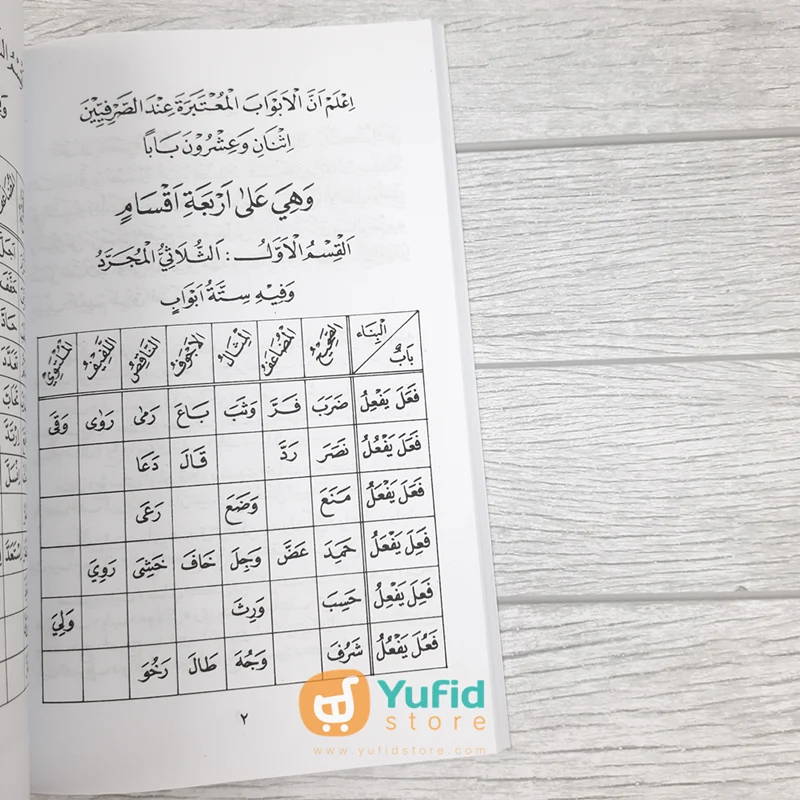 اِعْلَمْ اَنَّ الْاَبْوَابَ الْمُعْتَبَرَةَ عِنْدَ الصَّرْفِيِّيْنَ
اِثْنَانِ وَعِشْرُوْنَ بَابًا
وَهِيَ عَلٰى اَرْبَعَةِ اَقْسَامٍ
اَلْقِسْمُ الْاَوَّلُ : اَلثُّلَاثِيُّ الْمُجَرَّدُ
وَفِيْهِ سِتَّةُ اَبْوَابٍ
اَلْبِنَاء بَابٌ الصَّحِيْحُ الْمُضَاعَفُ الْمِثَالُ الْاَجْوَفُ النَّاقِصُ اللَّفِيْفُ الْمُلْتَوِيْ
فَعَلَ يَفْعِلُ ضَرَبَ فَرَّ وَثَبَ بَاعَ رَمٰى رَوٰى وَقٰى
فَعَلَ يَفْعُلُ نَصَرَ رَدَّ قَالَ دَعَا
فَعَلَ يَفْعَلُ مَنَعَ وَضَعَ رَعٰى
فَعِلَ يَفْعَلُ حَمِدَ عَضَّ وَجِلَ خَافَ خَشِيَ رَوِيَ
فَعِلَ يَفْعِلُ حَسِبَ وَرِثَ وَلِيَ
فَعُلَ يَفْعُلُ شَرُفَ وَجُهَ طَالَ رَخُوَ
٢
Yufid
store
www.yufidstore.com